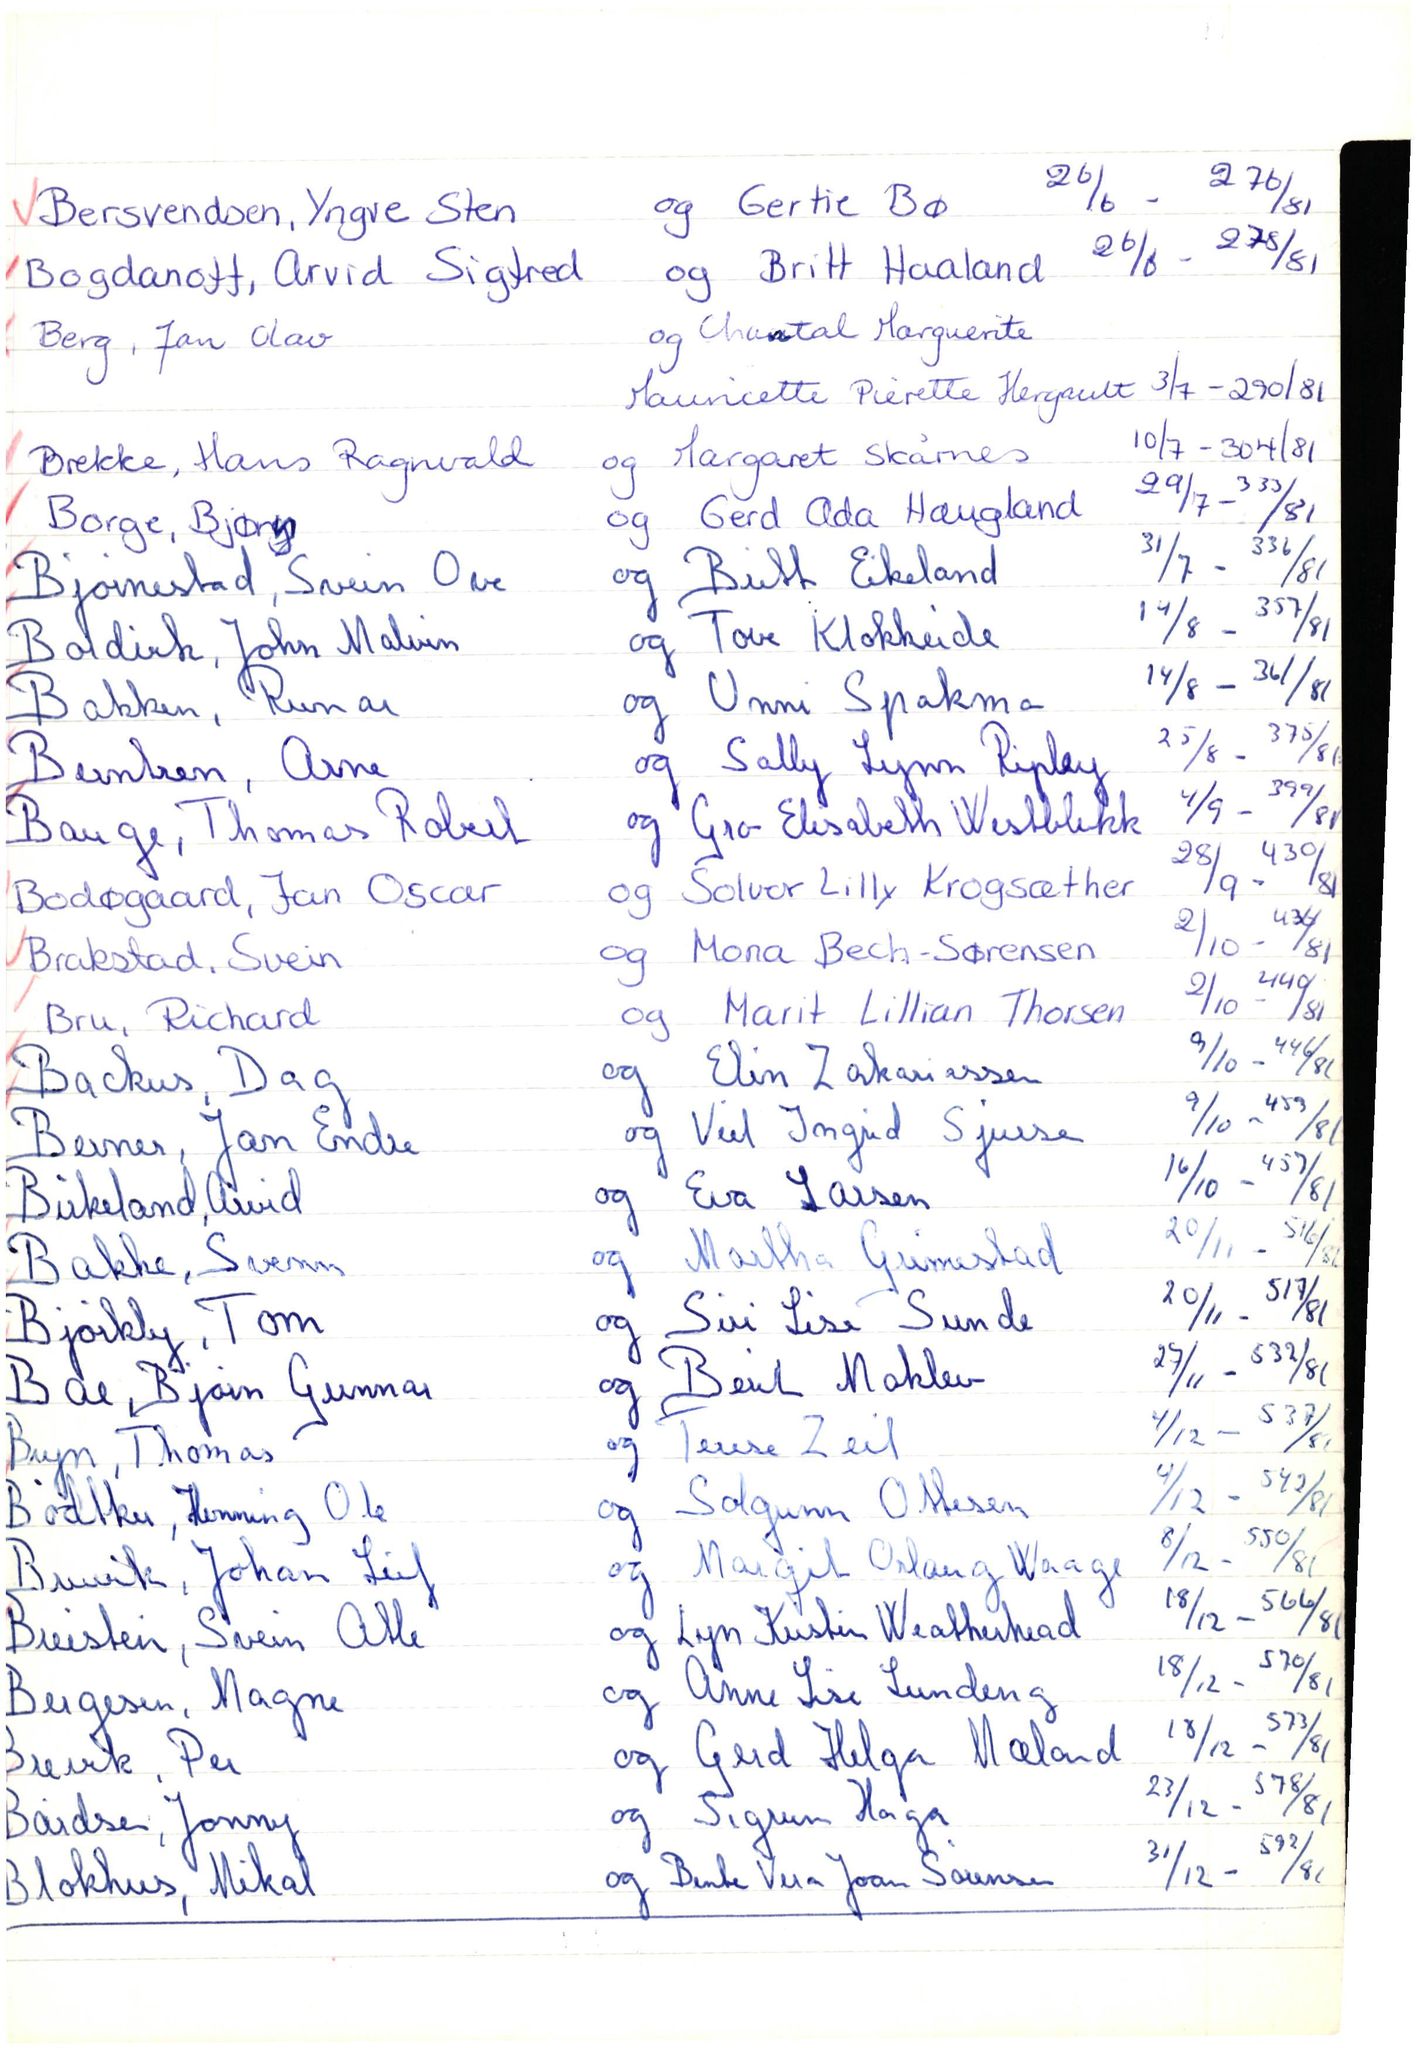 Bersvendsen, Yngve Sten og Gertie Bø 26/6 - 276/81
Bogdanoff, Arvid Sigfred og Britt Haaland 26/6 - 278/81
Berg, Jan Olav og Chantal Marguerite
Mauricette Pierette Hergault 3/7 - 290/81
Brekke, Hans Ragnvald og Margaret Skårnes 10/7 - 304/81
Borge, Bjørg og Gerd Ada Haugland 29/7 - 333/81
Bjørnestad, Svein Ove og Britt Eikeland 31/7 - 336/81
Boldirk, John Malvin og Tove Klokkeide 14/8 - 357/81
Bakken, Runar og Unni Spakmo 14/8 - 361/81
Berntsen, Arne og Sally Lynn Ripley 25/8 - 375/81
Bauge, Thomas Robert og Gro Elisabeth Westblikk 4/9 - 399/81
Bodøgaard, Jan Oscar og Solvor Lilly Krogsæther 28/9 - 430/81
Brakstad, Svein og Mona Bech-Sørensen 2/10 - /81
Bru, Richard og Marit Lillian Thorsen 2/10 - 440/81
Backus, Dag og Elin Zakariassen 9/10 - 446/81
Berner, Jan Endre og Veil Ingrid Sjursen 9/10 - 453/81
Birkeland, Arvid og Eva Larsen 16/10 - 457/81
Bakke, Svenn og Martha Grimestad 20/11 - 516/81
Bjørkly, Tom og Siri Lise Sunde 20/11 - 517/81
Bae, Bjørn Gunnar og Berit Moklev 27/11 - 532/81
Bryn, Thomas og Terese Zeil 4/12 - 537/81
Bødtker, Henning Ole og Solgunn Ottesen 4/12 - 542/81
Brevik, Johan Leif og Margit Oslaug Waage 8/12 - 550/81
Breistein, Svein Atle og Lyn Kristin Weatherhead 18/12 - 566/81
Bergesen, Magne og Anne Lise Lundeng 18/12 - 570/81
Brevik, Per og Gerd Helga Mæland 18/12 - 573/81
Bårdsen, Jonny og Sigrun Haga 23/12 - 578/81
Blokhus, Mikal og Bente Vera Joan Sørensen 31/12 - 592/81